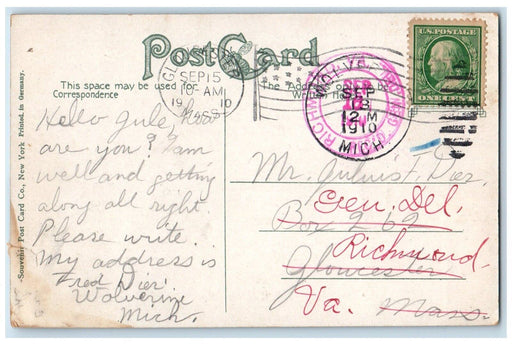 Post Card
This space may be used for
Correspondence
The Address
SEP 15
AM
19 10
MASS
RICHMOND, VA.
SEP
13
12 M
1910
MICH.
U.S. POSTAGE
ONE CENT
Souvenir Post Card Co., New York Printed in Germany.
Hello Jule, How
are you? I am
well and getting
along all right.
Please write
My address is
Fred Dier.
Wolverine
Mich.
Mr. Julius F. Dier.
Gen. Del.
Box 262
Richmond.
Gloucester
Va. Mass.